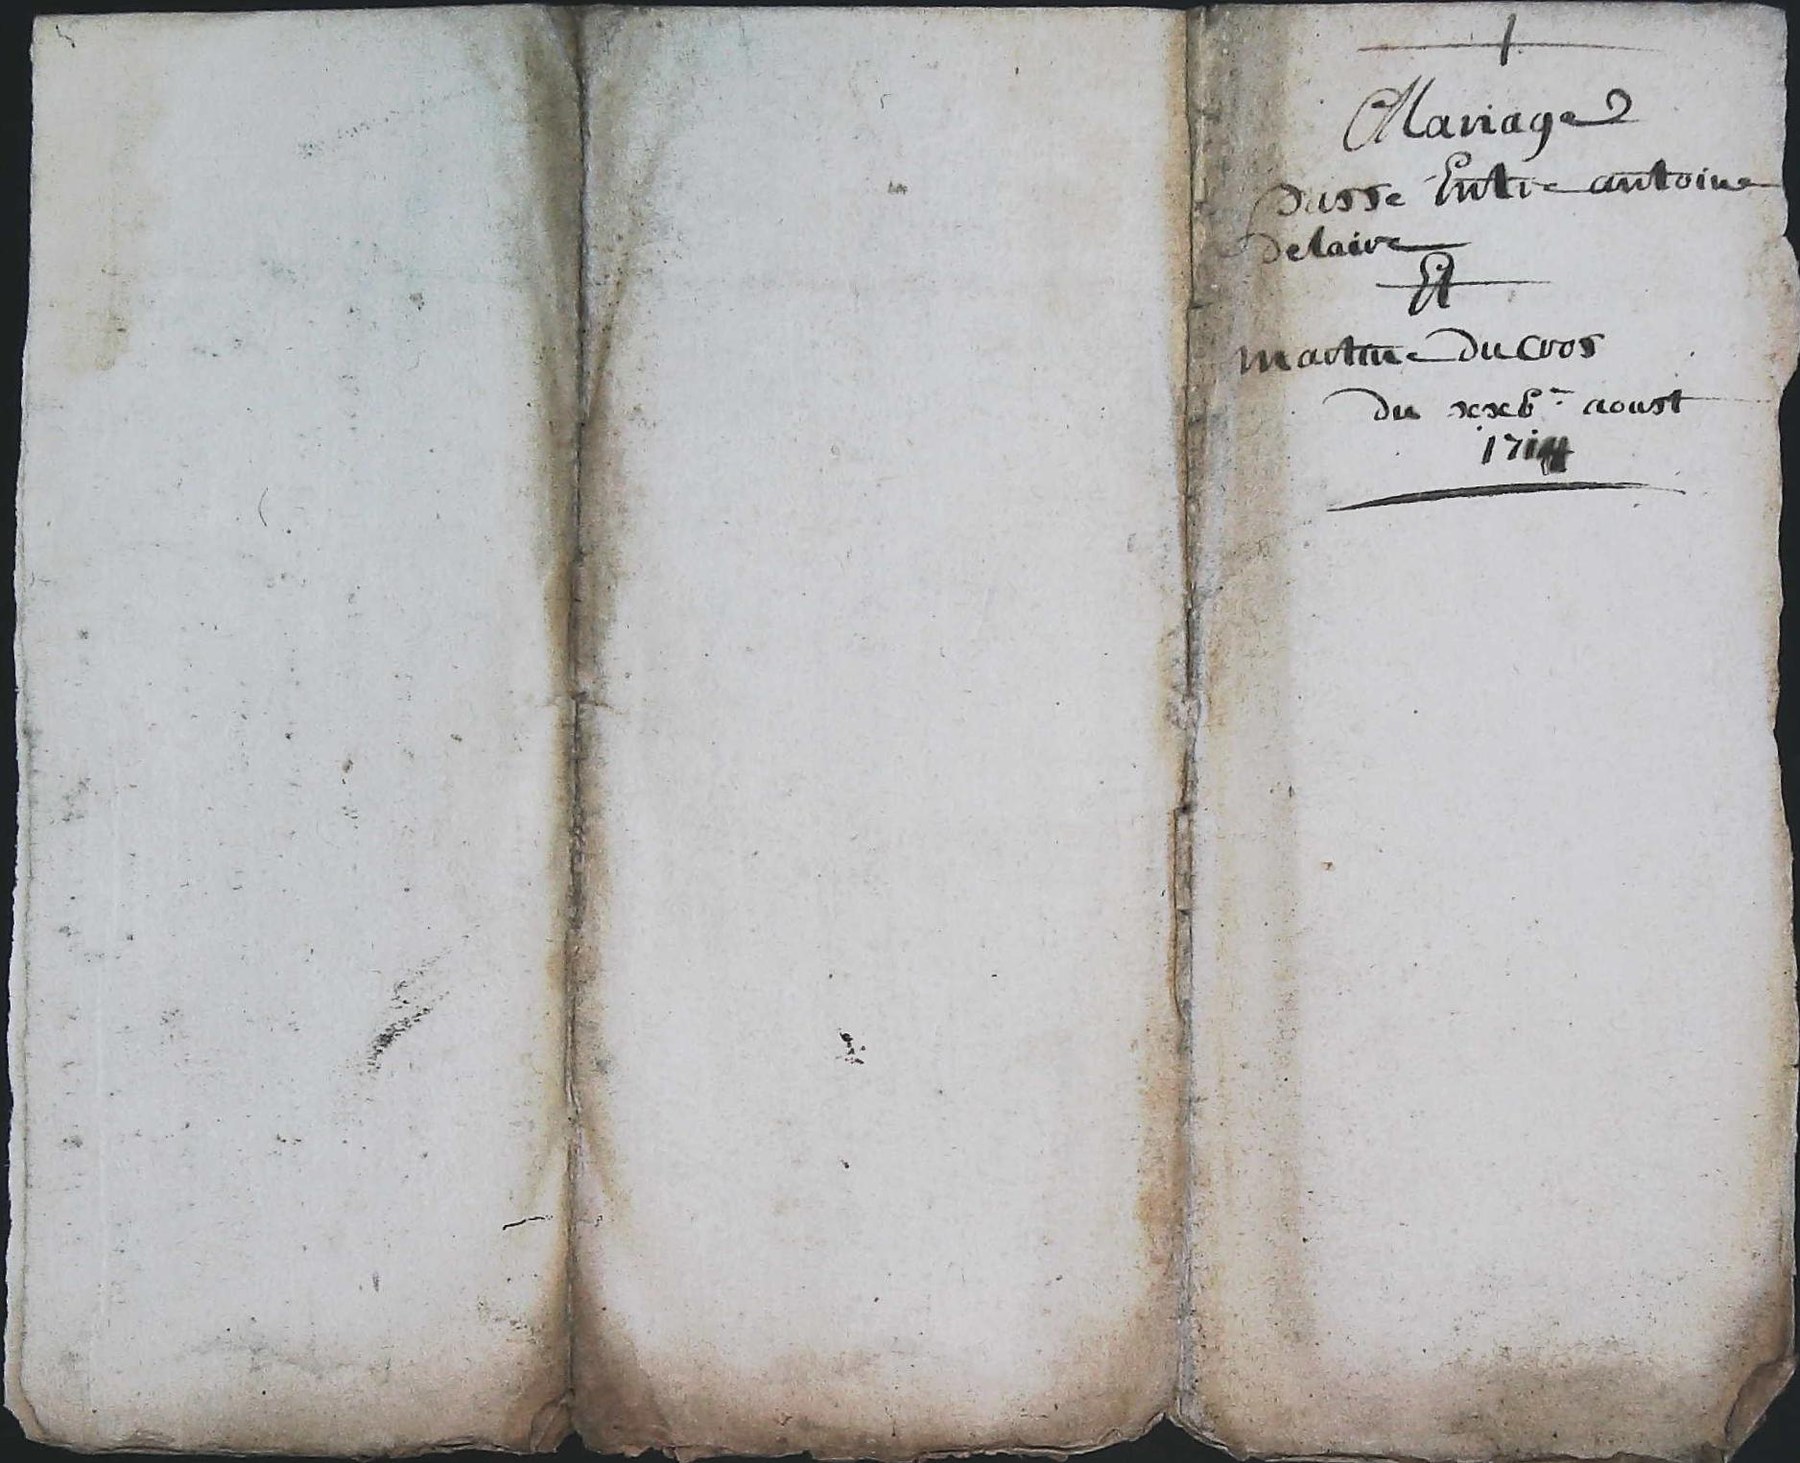 Mariage
passe Entre antoine
delaire
Et
martine ducros
du xxbe aoust
1714